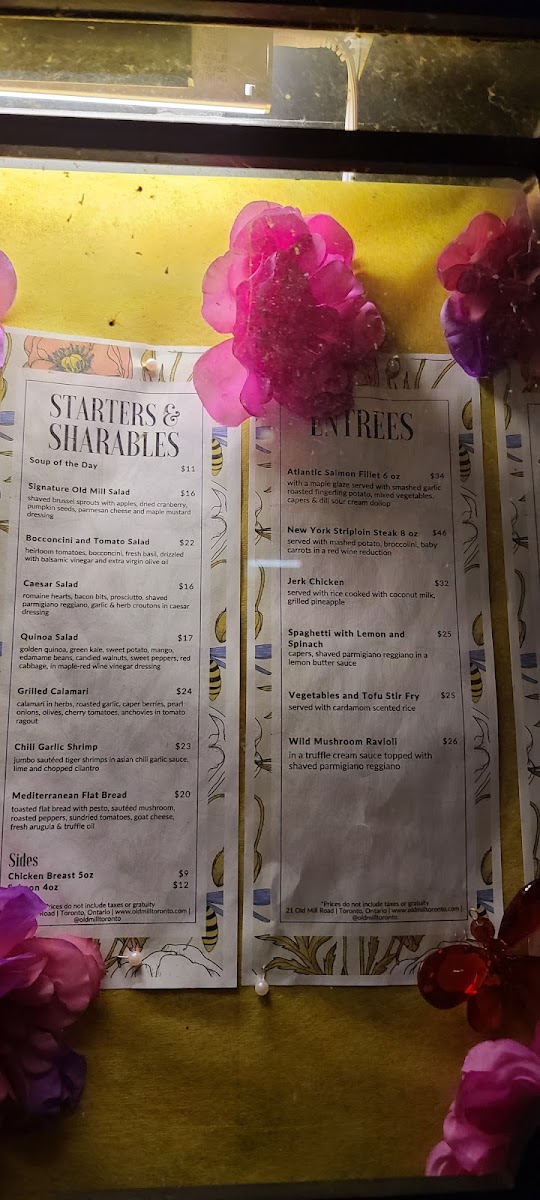 STARTERS &
SHARABLES
Soup of the Day $11
Signature Old Mill Salad $16
shaved brussel sprouts with apples, dried cranberry,
pumpkin seeds, parmesan cheese and maple mustard
dressing
Bocconcini and Tomato Salad $22
heirloom tomatoes, bocconcini, fresh basil, drizzled
with balsamic vinegar and extra virgin olive oil
Caesar Salad $16
romaine hearts, bacon bits, prosciutto, shaved
parmigiano reggiano, garlic & herb croutons in caesar
dressing
Quinoa Salad $17
golden quinoa, green kale, sweet potato, mango,
edamame beans, candied walnuts, sweet peppers, red
cabbage, in maple-red wine vinegar dressing
Grilled Calamari $24
calamari in herbs, roasted garlic, caper berries, pearl
onions, olives, cherry tomatoes, anchovies in tomato
ragout
Chili Garlic Shrimp $23
jumbo sautéed tiger shrimps in asian chili garlic sauce,
lime and chopped cilantro
Mediterranean Flat Bread $20
toasted flat bread with pesto, sautéed mushroom,
roasted peppers, sundried tomatoes, goat cheese,
fresh arugula & truffle oil
Sides
Chicken Breast 5oz $9
4oz $12
Prices do not include taxes or gratuity
Road | Toronto, Ontario | www.oldmilltoronto.com |
@oldmilltoronto
ENTRÉES
Atlantic Salmon Fillet 6 oz $34
with a maple glaze served with smashed garlic
roasted fingerling potato, mixed vegetables,
capers & dill sour cream dollop
New York Striploin Steak 8 oz $46
served with mashed potato, broccolini, baby
carrots in a red wine reduction
Jerk Chicken $32
served with rice cooked with coconut milk,
grilled pineapple
Spaghetti with Lemon and $25
Spinach
capers, shaved parmigiano reggiano in a
lemon butter sauce
Vegetables and Tofu Stir Fry $25
served with cardamom scented rice
Wild Mushroom Ravioli $26
in a truffle cream sauce topped with
shaved parmigiano reggiano
*Prices do not include taxes or gratuity
21 Old Mill Road | Toronto, Ontario | www.oldmilltoronto.com |
@oldmilltoronto